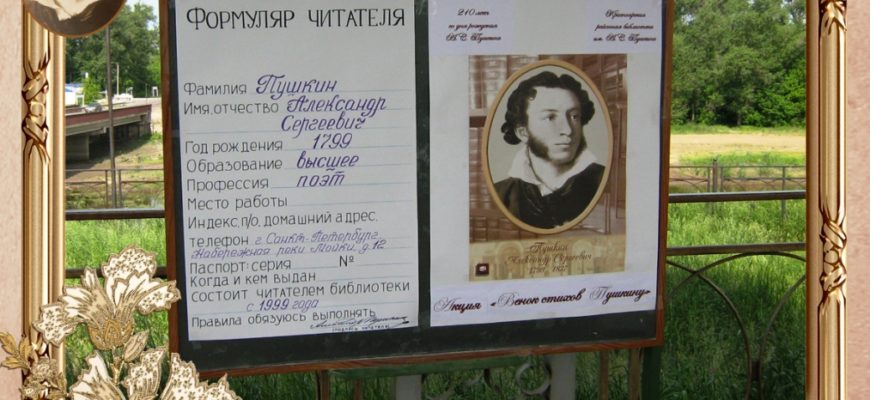 ФОРМУЛЯР ЧИТАТЕЛЯ
Фамилия Пушкин
Имя, отчество Александр
Сергеевич
Год рождения 1799
Образование высшее
Профессия поэт
Место работы
Индекс, п/о, домашний адрес,
телефон г. Санкт-Петербург
Набережная реки Мойки д. 12
Паспорт: серия №
Когда и кем выдан
состоит читателем библиотеки
с 1999 года
Правила обязуюсь выполнять
210 лет
со дня рождения
А. С. Пушкина
районная библиотека
им. А. С. Пушкина
Пушкин
Александр Сергеевич
1799 1837
Акция «Венок стихов Пушкину»